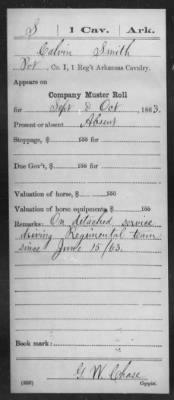 S | 1 Cav. | Ark.
Calvin Smith
Pvt., Co. I, 1 Reg't Arkansas Cavalry.
Appears on
Company Muster Roll
for Sept & Oct, 1863.
Present or absent Absent
Stoppage, $ 100 for
Due Gov't, $ 100
Valuation of horse, $ 100
Valuation of horse equipments, $ 100
Remarks: On detached service
driving Regimental team
since June 15/63.
Book mark:
G. W. Chase
(358) Copyist.